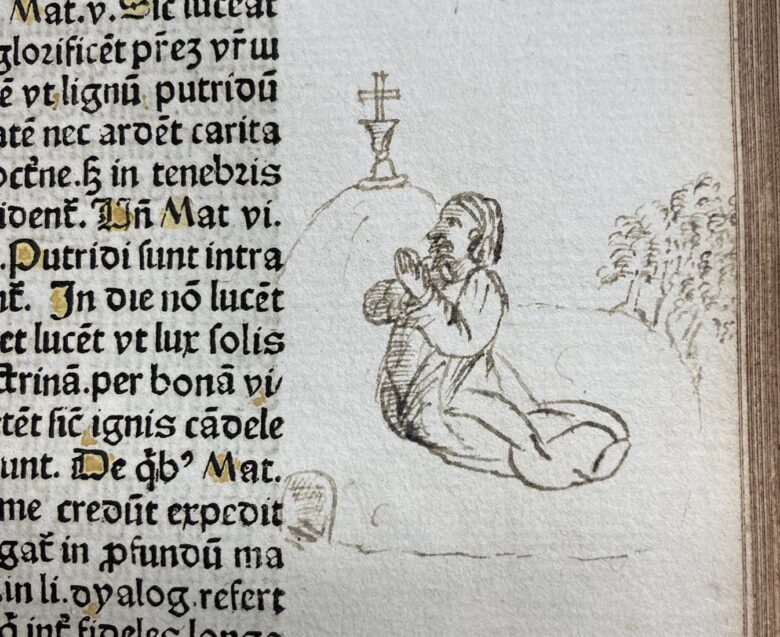 Mat.v. Sic luceat
glorificēt pr̄eʒ vr̄ш
ē vt lignū putridū
atē nec ardēt carita
octr̄ne.ꝫ in tenebris
ident̄. Un̄ Mat vi.
. Putridi sunt intra
nt̄. In die nō lucēt
et lucēt vt lux solis
ctrinā.per bonā vi/
tēt sic̄ ignis cādele
unt. De q̄bꝰ Mat.
me credūt expedit
gat̄ in ꝓfundū ma
.in li.dyalog.refert
int̄ fideles longe